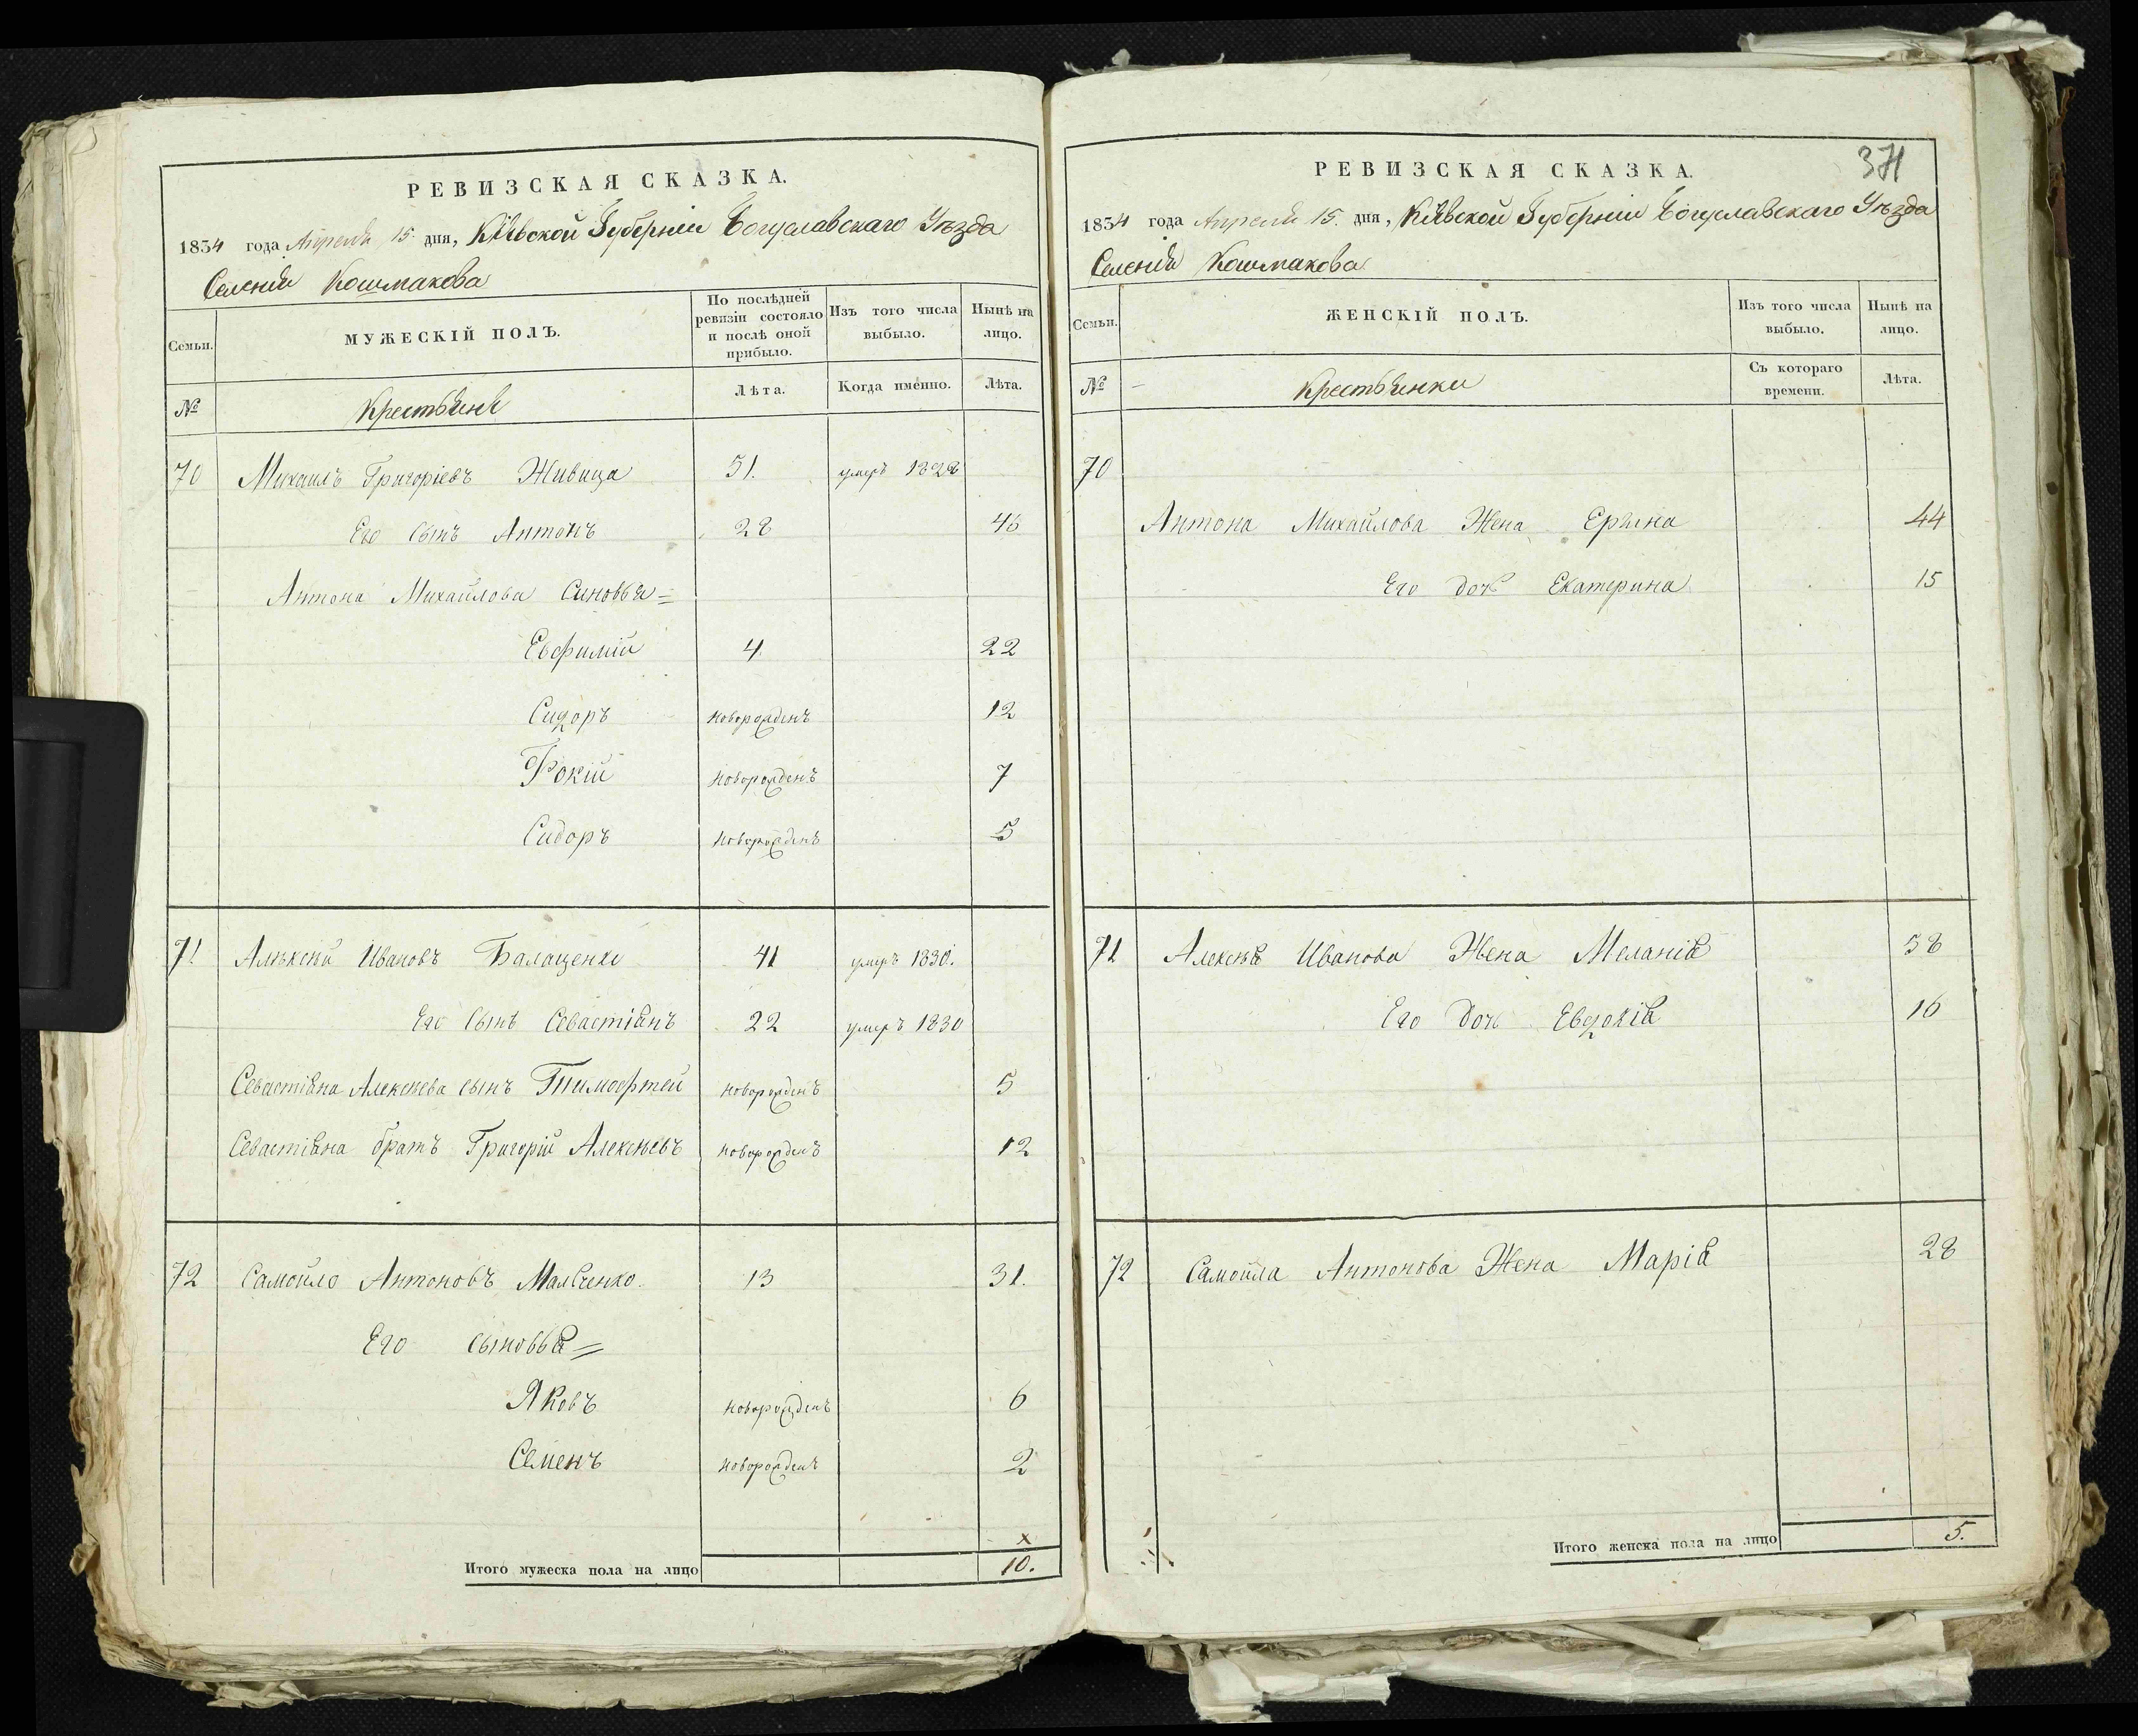 РЕВИЗСКАЯ СКАЗКА.
1834 года Апреля 15 дня, Кіевской Губерніи Богуславскаго Уѣзда
Селенія Кошмакова
Семьи. МУЖЕСКІЙ ПОЛЪ. По послѣдней ревизіи состояло и послѣ оной прибыло. Изъ того числа выбыло. Нынѣ на лицо.
№ Крестьяне Лѣта. Когда именно. Лѣта.
70 Михаилъ Григоріевъ Живица 51. умеръ 1828
Его сынъ Антонъ 28 46
Антона Михайлова Сыновья=
Евфимій 4 22
Сидоръ новорожденъ 12
Фокій новорожденъ 7
Сидоръ новорожденъ 5
71 Алѣксѣй Ивановъ Балаценко 41 умеръ 1830.
Его Сынъ Севастіянъ 22 умеръ 1830
Севастіяна Алексѣева сынъ Тимофтей новорожденъ 5
Севастіяна братъ Григорій Алексѣевъ новорожденъ 12
72 Самойло Антоновъ Малченко 13 31.
Его сыновья=
Яковъ новорожденъ 6
Семенъ новорожденъ 2
x
Итого мужеска пола на лицо 10.
371
РЕВИЗСКАЯ СКАЗКА.
1834 года Апреля 15. дня, Кіевской Губерніи Богуславскаго Уѣзда
Селенія Кошмакова
Семьи. ЖЕНСКІЙ ПОЛЪ. Изъ того числа выбыло. Нынѣ на лицо.
№ Крестьянки Съ котораго времени. Лѣта.
70
Антона Михайлова Жена Ерина 44
Его дочь Екатерина 15
71 Алексѣя Иванова Жена Меланія 58
Его Дочь Евдокія 16
72 Самойла Антонова Жена Марія 28
Итого женска пола на лицо 5.